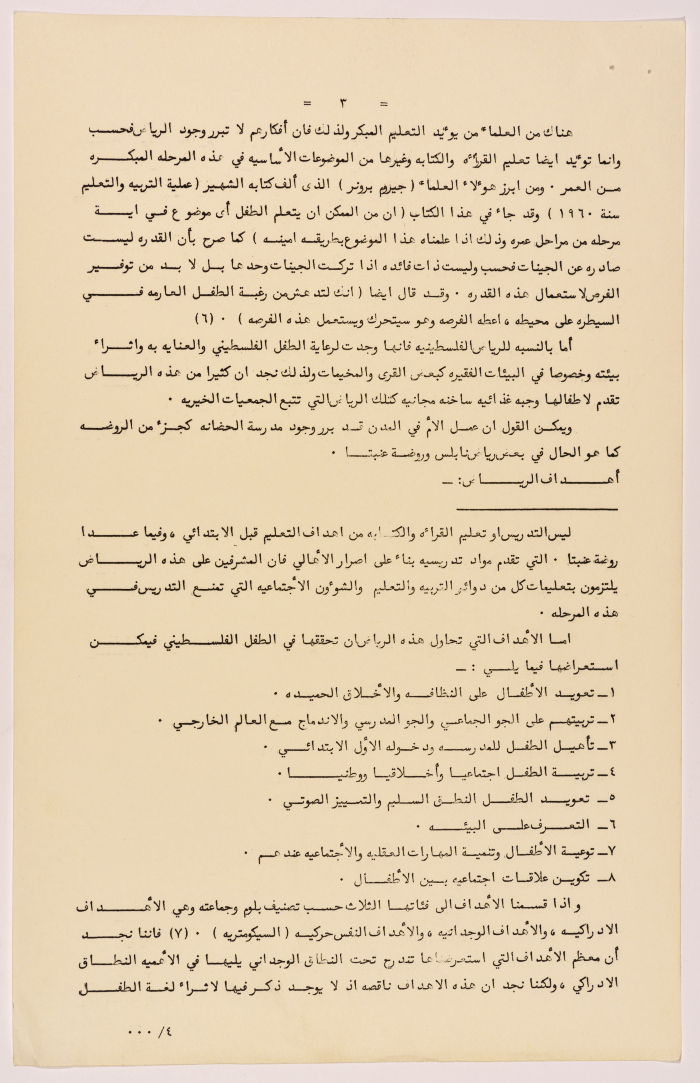 = ٣ =
هناك من العلماء من يوءيد التعليم المبكر ولذلك فان أفكارهم لا تبرر وجود الرياض فحسب
وانما توءيد ايضا تعليم القراءه والكتابه وغيرها من الموضوعات الأساسيه في هذه المرحله المبكره
من العمر ٠ ومن ابرز هوءلاء العلماء ( جيروم برونر ) الذى ألف كتابه الشهير (عملية التربيه والتعليم
سنة ١٩٦٠ ) وقد جاء في هذا الكتاب ( ان من الممكن ان يتعلم الطفل أى موضوع في اية
مرحله من مراحل عمره وذلك اذا علمناه هذا الموضوع بطريقه امينه ) كما صرح بأن القدره ليست
صادره عن الجينات فحسب وليست ذات فائده اذا تركت الجينات وحدها بل لا بد من توفير
الفرص لاستعمال هذه القدره ٠ وقد قال ايضا ( انك لتدهش من رغبة الطفل العارمه في
السيطره على محيطه ، اعطه الفرصه وهو سيتحرك ويستعمل هذه الفرصه ) ٠ (٦)
أما بالنسبه للرياض الفلسطينيه فانها وجدت لرعاية الطفل الفلسطيني والعنايه به واثراء
بيئته وخصوصا في البيئات الفقيره كبعض القرى والمخيمات ولذلك نجد ان كثيرا من هذه الرياض
تقدم لاطفالها وجبه غذائيه ساخنه مجانيه كتلك الرياض التي تتبع الجمعيات الخيريه ٠
ويمكن القول ان عمل الأم في المدن قد برر وجود مدرسة الحضانه كجزء من الروضه
كما هو الحال في بعض رياض نابلس وروضة عنبتا ٠
أهداف الرياض: ــ
ليس التدريس او تعليم القراءه والكتابه من اهداف التعليم قبل الابتدائي ، وفيما عدا
روضة عنبتا ٠ التي تقدم مواد تدريسيه بناء على اصرار الأهالي فان المشرفين على هذه الرياض
يلتزمون بتعليمات كل من دوائر التربيه والتعليم والشوءون الأجتماعيه التي تمنع التدريس في
هذه المرحله ٠
اما الأهداف التي تحاول هذه الرياض ان تحققها في الطفل الفلسطيني فيمكن
استعراضها فيما يلي : ــ
١ــ تعويد الأطفال على النظافه والأخلاق الحميده ٠
٢ــ تربيتهم على الجو الجماعي والجو المدرسي والاندماج مع العالم الخارجي ٠
٣ــ تأهيل الطفل للمدرسه ودخوله الأول الابتدائي ٠
٤ــ تربية الطفل اجتماعيا وأخلاقيا ووطنيا ٠
٥ــ تعويد الطفل النطق السليم والتمييز الصوتي ٠
٦ــ التعرف على البيئه ٠
٧ــ توعية الأطفال وتنمية المهارات العقليه والأجتماعيه عندهم ٠
٨ــ تكوين علاقات اجتماعيه بين الأطفال ٠
واذا قسمنا الأهداف الى فئاتها الثلاث حسب تصنيف بلوم وجماعته وهي الأهداف
الادراكيه ، والأهداف الوجدانيه ، والأهداف النفس حركيه ( السيكومتريه ) ٠ (٧) فاننا نجد
أن معظم الأهداف التي استعرضناها تندرج تحت النطاق الوجداني يليها في الأهميه النطاق
الادراكي ، ولكننا نجد ان هذه الاهداف ناقصه اذ لا يوجد ذكر فيها لاثراء لغة الطفل
٤/ ٠٠٠